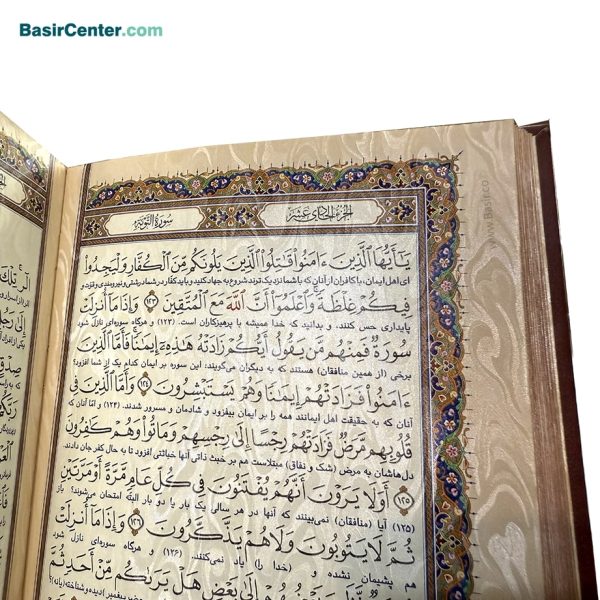 BasirCenter.com
الجزء الحادی عشر
سورة التوبة
يَـٰٓأَيُّهَا ٱلَّذِينَ ءَامَنُوا۟ قَـٰتِلُوا۟ ٱلَّذِينَ يَلُونَكُم مِّنَ ٱلْكُفَّارِ وَلْيَجِدُوا۟
ای اهل ایمان، با کافران از آنان که با شما نزدیک‌ترند شروع به جهاد کنید و باید کفار در شما درشتی و نیرومندی و قوت و
فِيكُمْ غِلْظَةً ۚ وَٱعْلَمُوٓا۟ أَنَّ ٱللَّهَ مَعَ ٱلْمُتَّقِينَ ١٢٣ وَإِذَا مَآ أُنزِلَتْ
پایداری حس کنند، و بدانید که خدا همیشه با پرهیزکاران است. (۱۲۳) و هرگاه سوره‌ای نازل شود
سُورَةٌ فَمِنْهُم مَّن يَقُولُ أَيُّكُمْ زَادَتْهُ هَـٰذِهِۦٓ إِيمَـٰنًا ۚ فَأَمَّا ٱلَّذِينَ
برخی (از همین منافقان) هستند که به دیگران می‌گویند: این سوره بر ایمان کدام یک از شما افزود؟
ءَامَنُوا۟ فَزَادَتْهُمْ إِيمَـٰنًا وَهُمْ يَسْتَبْشِرُونَ ١٢٤ وَأَمَّا ٱلَّذِينَ فِى
آنان که به حقیقت اهل ایمانند همه را بر ایمان بیفزود و شادمان و مسرور شدند. (۱۲۴) و امّا آنان که
قُلُوبِهِم مَّرَضٌ فَزَادَتْهُمْ رِجْسًا إِلَىٰ رِجْسِهِمْ وَمَاتُوا۟ وَهُمْ كَـٰفِرُونَ
دل‌هاشان به مرض (شک و نفاق) مبتلاست هم بر خبث ذاتی آنها خباثتی افزود تا به حال کفر جان دادند.
١٢٥ أَوَلَا يَرَوْنَ أَنَّهُمْ يُفْتَنُونَ فِى كُلِّ عَامٍ مَّرَّةً أَوْ مَرَّتَيْنِ
(۱۲۵) آیا (منافقان) نمی‌بینند که آنها در هر سالی یک بار یا دو بار البته امتحان می‌شوند؟ باز
ثُمَّ لَا يَتُوبُونَ وَلَا هُمْ يَذَّكَّرُونَ ١٢٦ وَإِذَا مَآ أُنزِلَتْ
هم پشیمان نشده و (خدا را) یاد نمی‌کنند. (۱۲۶) و هرگاه سوره‌ای نازل شود
بَعْضٍ هَلْ يَرَىٰكُم مِّنْ أَحَدٍ ثُمَّ